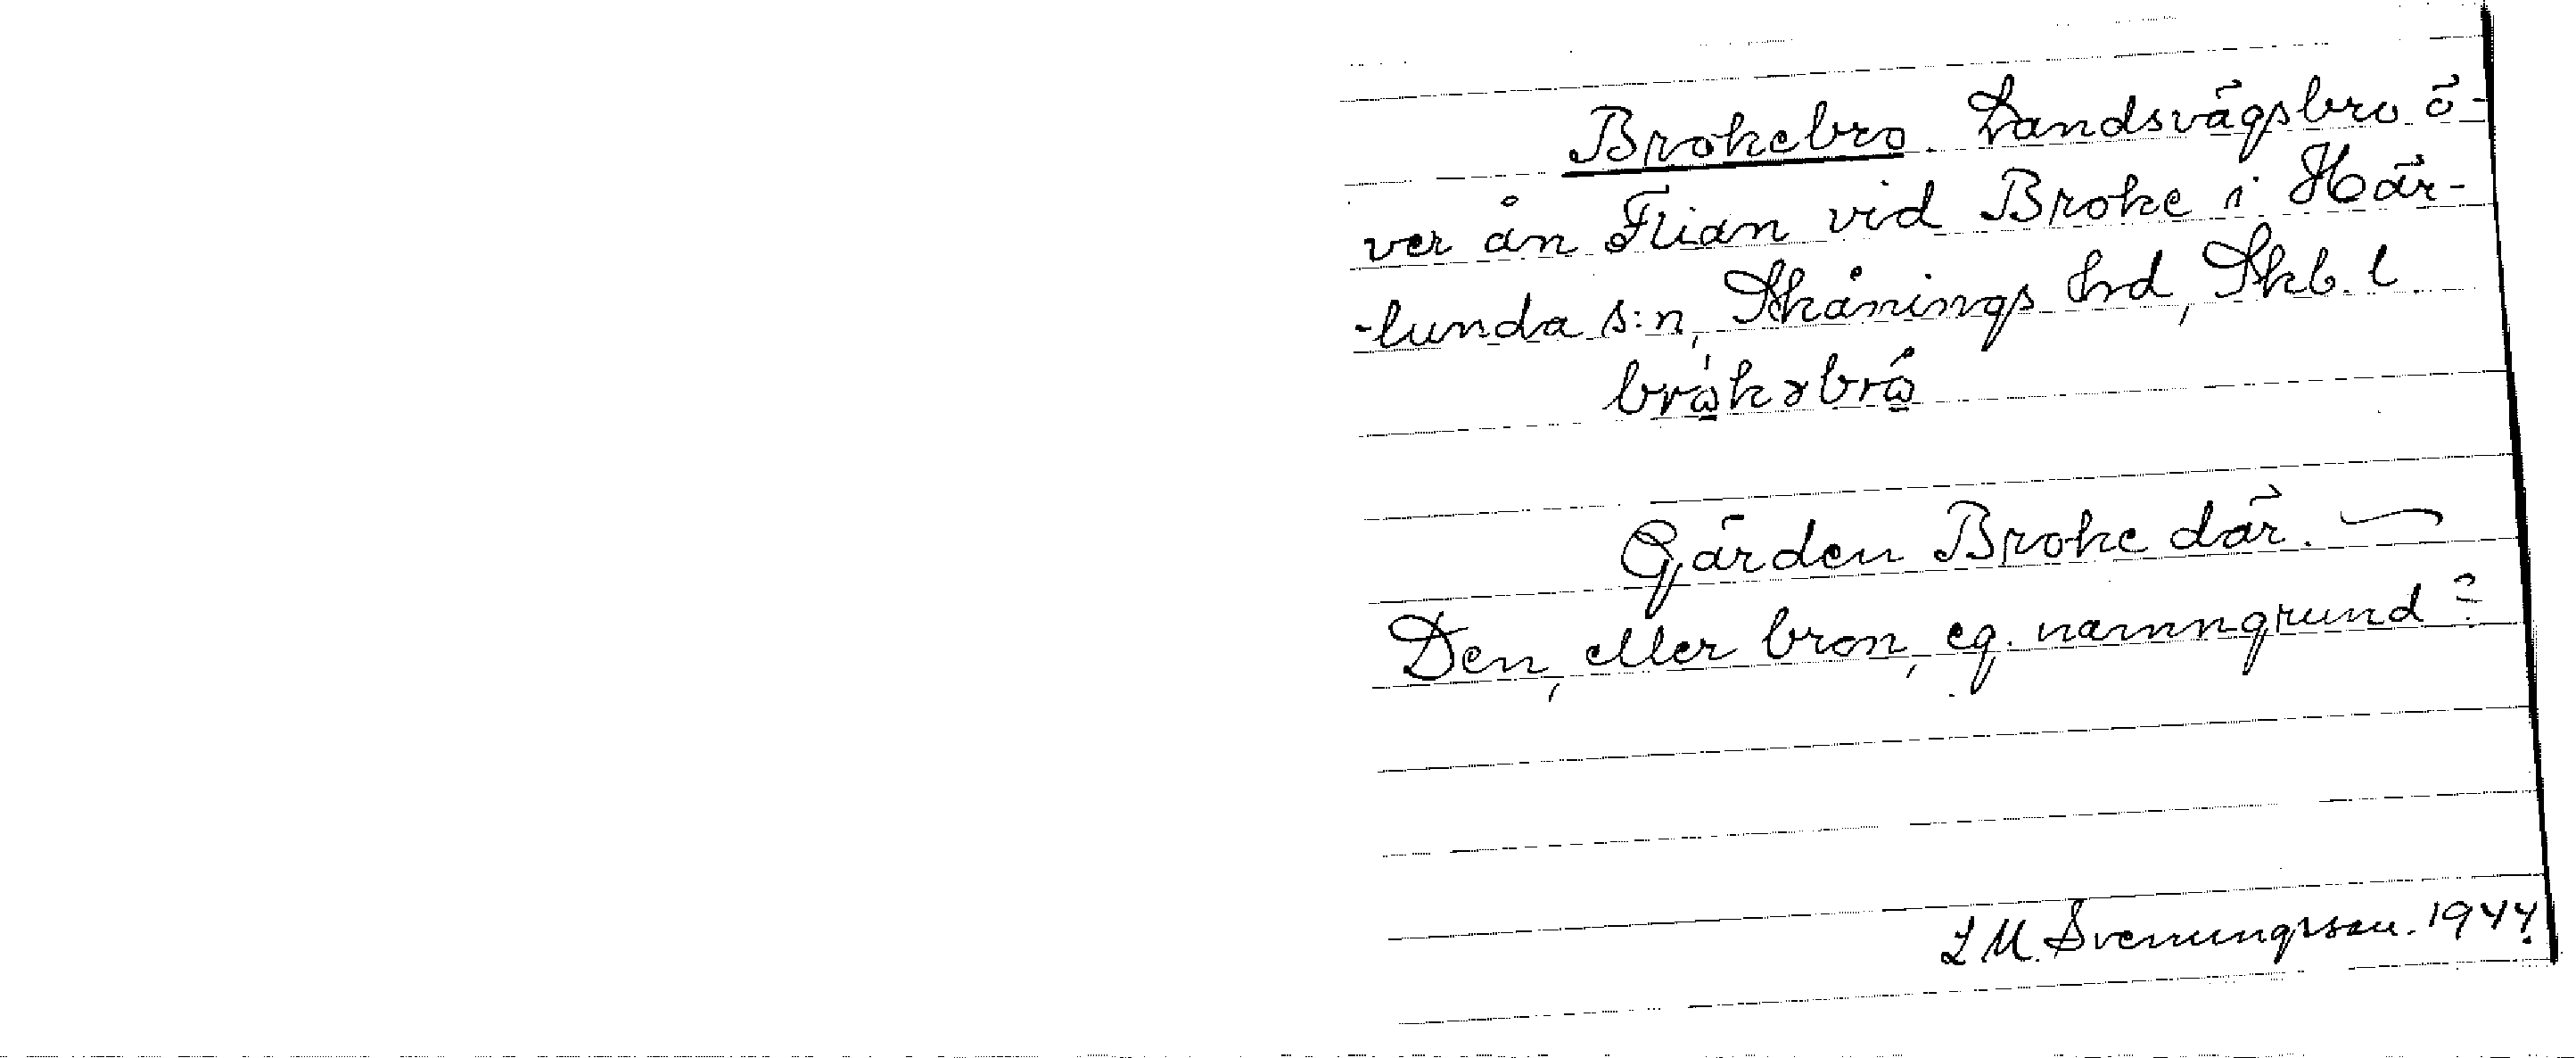 Brokebro. Landsvägsbro ö-
ver ån Flian vid Broke i Här-
-lunda s:n, Skånings hrd, Skb. l
brå̀kəbrå
Gården Broke där. —
Den, eller bron, eg. namngrund?
L M. Svenungsson. 1944.